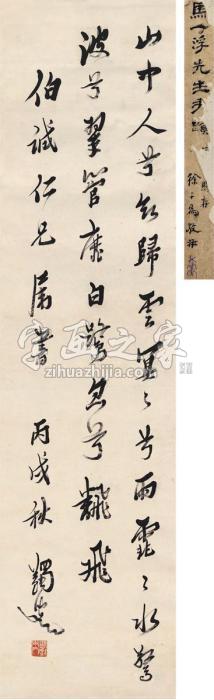 馬一浮先生手蹟
山中人兮欲歸雲冥々兮雨霏々水驚
波兮翠管靡白鷺忽兮飜飛
伯誠仁兄屬書 丙戌秋 蠲叟
字画之家
www.zihuazhijia.com